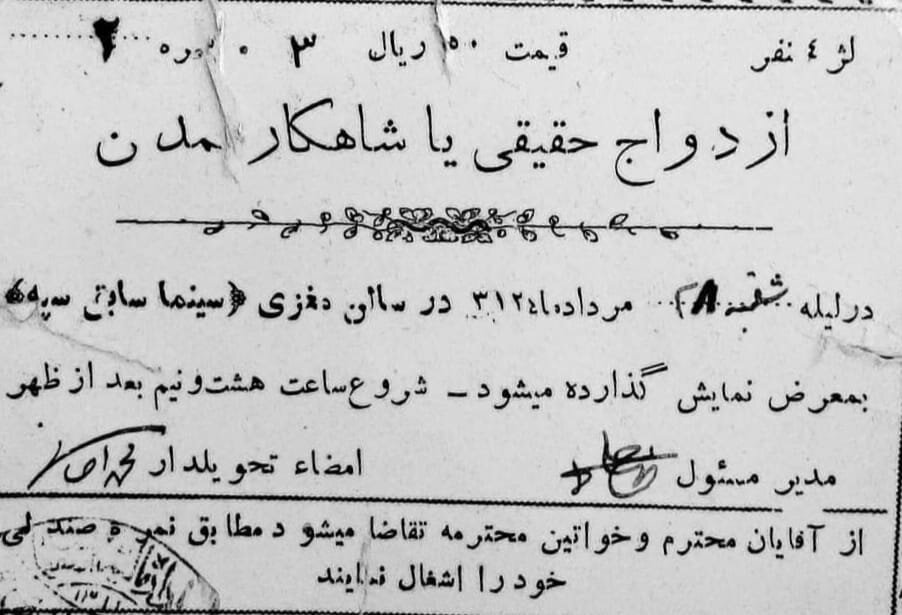 لژ ٤ نفر قیمت ٥٠ ریال ٣ نمره ٢
ازدواج حقیقی یا شاهکار تمدن
در لیله ٢٨ مرداد ماه ٣١٢٤ در سالن مغزی ﴿سینما سابق سپه﴾
بمعرض نمایش گذارده میشود – شروع ساعت هشت‌و‌نیم بعد از ظهر
مدیر مسئول امضاء تحویلدار
از آقایان محترم و خواتین محترمه تقاضا میشود مطابق نمره صندلی
خود را اشغال نمایند